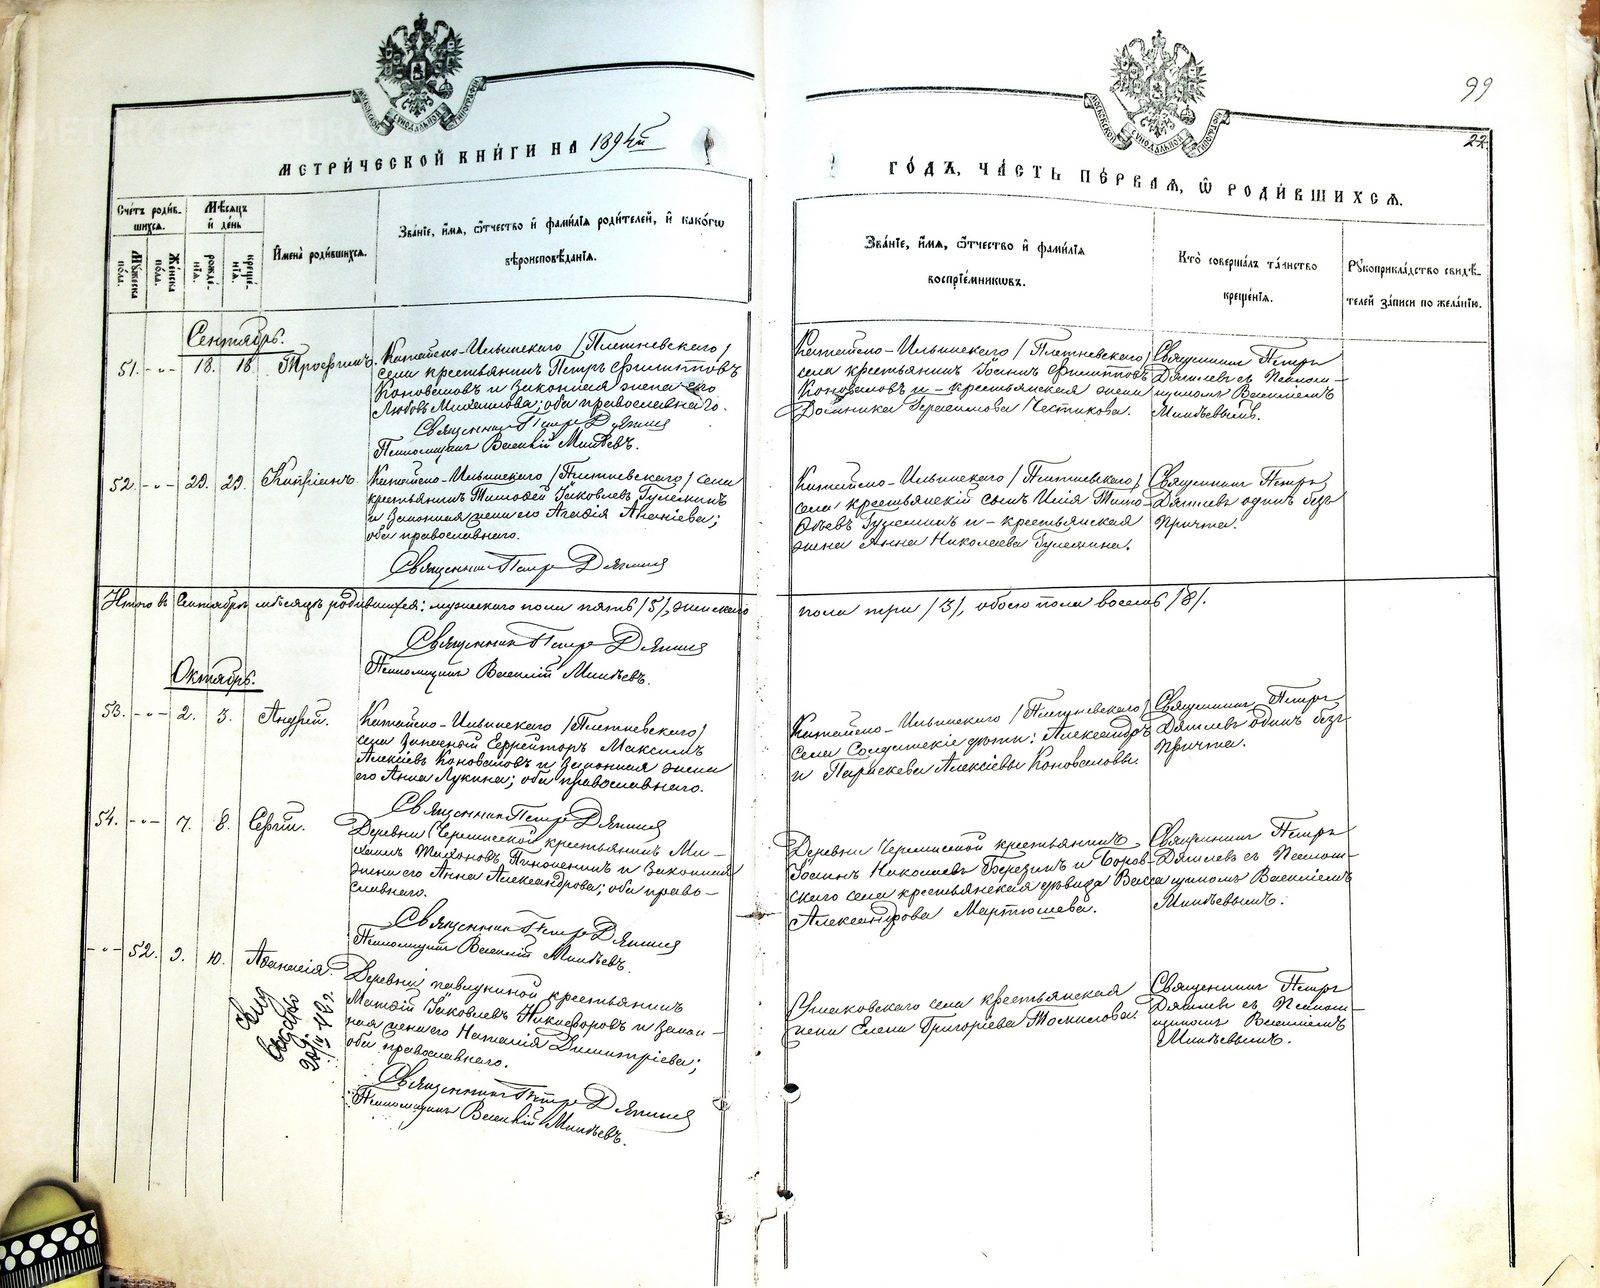 99
22.
МОСКОВСКОЙ СѴНОДАЛЬНОЙ ТИПОГРАФІИ
МОСКОВСКОЙ СѴНОДАЛЬНОЙ ТИПОГРАФІИ
МЕТРИ́ЧЕСКОЙ КНИ́ГИ НА 1894ый
ГО́ДЪ, ЧА́СТЬ ПЕ́РВАѦ, Ѡ҆ РОДИ́ВШИХСѦ.
Сче́тъ роди́в-
шихсѧ.
Мꙋжеска по́ла.
Же́нска по́ла.
Мѣ́сѧцъ
и҆ де́нь
рожде́-
нїѧ.
креще́-
нїѧ.
И҆мена̀ роди́вшихсѧ.
Зва́нїе, и҆́мѧ, ѻ҆́тчество и҆ фами́лїѧ роди́телей, и҆ како́гѡ
вѣроисповѣ́данїѧ.
Зва́нїе, и҆́мѧ, ѻ҆́тчество и҆ фами́лїѧ
воспрїе́мникѡвъ.
Кто̀ соверша́лъ та́инство
креще́нїѧ.
Рꙋкоприкла́дство свидѣ́-
телей за́писи по жела́нїю.
Сентябрь.
51. -"- 18. 18. Трофимъ.
Катайско-Ильинскаго /Плетневскаго/
села крестьянинъ Петръ Филипповъ
Коноваловъ и законная жена его
Любовь Михаилова; оба православнаго.
Священникъ Петръ Дягилевъ
Псаломщикъ Василій Минѣевъ.
Катайско-Ильинскаго /Плетневскаго/
села крестьянинъ Іоаннъ Филипповъ
Коноваловъ и - крестьянская жена
Домника Герасимова Честикова.
Священникъ Петръ
Дягилевъ съ Псалом-
щикомъ Василіемъ
Минѣевымъ.
52. -"- 29. 29. Кипріанъ.
Катайско-Ильинскаго /Плетневскаго/ села
крестьянинъ Тимофей Іаковлевъ
и законная жена его Агафія Ананіева;
оба православнаго.
Священникъ Петръ Дягилевъ
Катайско-Ильинскаго /Плетневскаго/
села крестьянскій сынъ Илія Тимо-
феевъ и - крестьянская
жена Анна Николаева
Священникъ Петръ
Дягилевъ одинъ безъ
причта.
Итого въ Сентябрѣ мѣсяцѣ родившихся: мужескаго пола пять /5/, женскаго
пола три /3/, обоего пола восемь /8/.
Священникъ Петръ Дягилевъ
Псаломщикъ Василій Минѣевъ.
Октябрь.
53. -"- 2. 3. Андрей.
Катайско-Ильинскаго /Плетневскаго/
села запасный Ефрейторъ Максимъ
Алексіевъ Коноваловъ и законная жена
его Анна Лукина; оба православнаго.
Священникъ Петръ Дягилевъ
Катайско-Ильинскаго /Плетневскаго/
села Солдатскіе дѣти: Александръ
и Параскева Алексіевы Коноваловы.
Священникъ Петръ
Дягилевъ одинъ безъ
причта.
54. -"- 7. 8. Сергій.
Деревни Черемисской крестьянинъ Ми-
хаилъ Тихоновъ и законная
жена его Анна Александрова; оба право-
славнаго.
Священникъ Петръ Дягилевъ
Псаломщикъ Василій Минѣевъ.
Деревни Черемисской крестьянинъ
Іоаннъ Николаевъ Березинъ и Боров-
скаго села крестьянская дѣвица Васса
Александрова Мартюшева.
Священникъ Петръ
Дягилевъ съ Псалом-
щикомъ Василіемъ
Минѣевымъ.
-"- 52. 9. 10. Аѳанасія.
Деревни крестьянинъ
Матѳій Іаковлевъ Никифоровъ и закон-
ная жена его Наталія Димитріева;
оба православнаго.
Священникъ Петръ Дягилевъ
Псаломщикъ Василій Минѣевъ.
Ушаковскаго села крестьянская
жена Елена Григоріева Томилова.
Священникъ Петръ
Дягилевъ съ Псалом-
щикомъ Василіемъ
Минѣевымъ.